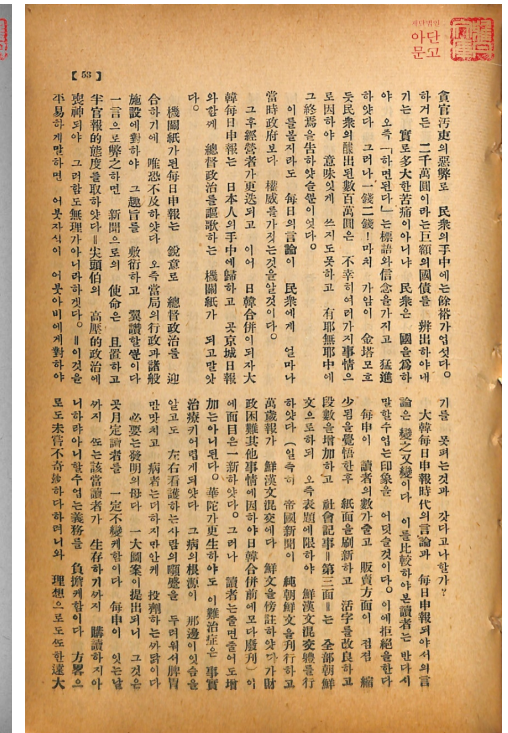 재단법인
아단
문고
【 53 】
貪官汚吏의惡弊로 民衆의手中에는餘裕가업섯다。
하거든 二千萬圓이라는巨額의國債를 辨出하야내
기는 實로多大한苦痛이아니냐 民衆은 國을爲하
야 오즉「하면된다」는標語와信念을가지고 猛進
하얏다 그러나一錢二錢!마치 가얌이 金塔모흐
듯民衆의醵出된數百萬圓은 不幸히여러가지事情으
로因하야 意味잇게 쓰지도못하고 有耶無耶中에
그終焉을告하야슬뿐이엇다。
이를볼지라도 每日의言論이 民衆에게 얼마나
當時政府보다 權威를가젓든것을알것이다。
그후經營者가更迭되고 이어 日韓合併이되자大
韓每日申報는 日本人의手中에歸하고 곳京城日報
와함께 總督政治를謳歌하는 機關紙가 되고말앗
다。
機關紙가된每日申報는 銳意로 總督政治를 迎
合하기에 唯恐不及하얏다 오즉當局의行政과諸般
施設에對하야 그趣旨를 敷衍하고 翼讚할뿐이다
一言으로弊之하면 新聞으로의 使命은 且置하고
半官報的態度를取하얏다=尖頭伯의 高壓的政治에
喪神되야 그러함도無理가아니라하겟다。=이것을
平易하게말하면 어붓자식이 어붓아비에게對하야
기를 못펴는것과 갓다고나할가?
大韓每日申報時代의言論과 每日申報되야서의言
論은 變之又變이다 이를比較하야본讀者는 반다시
말할수업는印象을 어덧슬것이다。이에拒絕을한다
每申이 讀者의數가줄고 販賣方面이 점점 縮
少됨을覺悟한후 紙面을刷新하고 活字를改良하고
段數를增加하고 社會記事=第三面=는 全部朝鮮
文으로하되 오즉表題에限하야 鮮漢文混交體를行
하얏다 (일즉히 帝國新聞이 純朝鮮文을刊行하고
萬歲報가 鮮漢文混交에다 鮮文을傍註하얏다가財
政困難其他事情에因하야日韓合併前에모다廢刊) 이
에面目은一新하얏다。그러나 讀者는줄면줄어도增
加는아니된다。華陀가更生하야도 이難治症은 事實
治療키어렵게되얏다 그病의根源이 那邊이잇슴을
알고도 左右看護하는사람의嚬蹙을 두려워서脾胃
만맛치고 病者는더하지만안케 投劑하는까닭이다
必要는發明의母다 一大圖案이提出되니 그것은
곳月定讀者를 一定不變케함이다 每申이 잇는날
까지 또는該當讀者가 生存하기까지 購讀하지아
니하랴아니할수업는義務를 負擔케함이다 方畧으
로도未嘗不奇妙하다하려니와 理想으로도또한達大